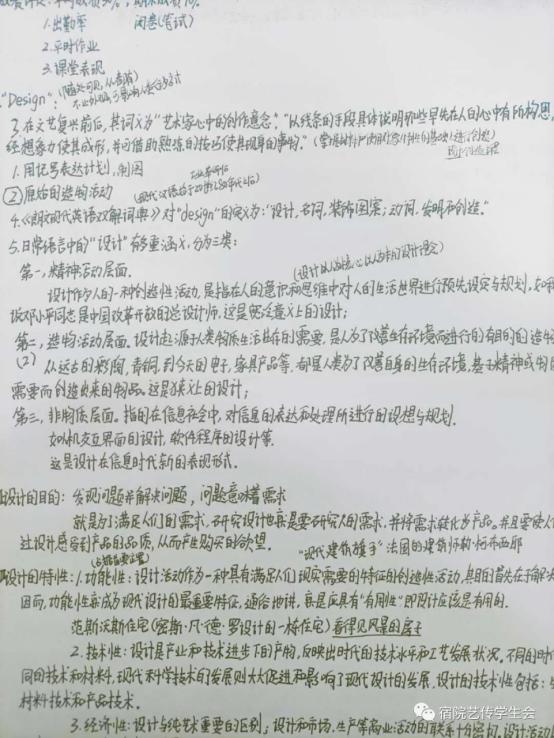 1.出勤率 闭卷(笔试)
2.平时作业
3.课堂表现
"Design":
3.在文艺复兴前后,其词义为"艺术家心中的创作意念"."以线条的手段具体说明那些早先在人的心中有所构思,
经想象力使其成形,并可借助熟练的技巧使其现身的事物."
1.用记号表达计划,制图
②原始的造物活动
4.《朗文现代英语双解词典》对"design"的定义为:"设计,名词,装饰图案;动词,发明和创造."
5.日常语言中的"设计"的多重涵义,分为三类:
第一,精神活动层面.
设计作为人的一种创造性活动,是指在人的意识和思维中对人的生活世界进行预先设定与规划,如
说邓小平同志是中国改革开放的总设计师,这是宽泛意义上的设计;
第二,造物活动层面.设计起源于人类物质生活生存的需要,是人为了改善生存环境而进行的有目的的造物
(2) 从远古的彩陶,青铜,到今天的电子,家具产品等,都是人类为了改善自身的生存环境,基于精神或物
需要而创造出来的物品,这是狭义上的设计;
第三,非物质层面.指的在信息社会中,对信息的表达和处理所进行的设想与规划.
如人机交互界面的设计,软件程序的设计等.
这是设计在信息时代新的表现形式.
设计的目的:发现问题并解决问题,问题意味着需求
就是为了满足人们的需求,研究设计也就是要研究人的需求,并将需求转化为产品。并且要使人
过设计感受到产品的品质,从而产生购买的欲望.
"现代建筑旗手"法国的建筑师勒·柯布西耶
设计的特性:1.功能性:设计活动作为一种具有满足人们现实需要的特征的创造性活动,其目的首先在于解决
因而,功能性亦成为现代设计的最重要特征,通俗地讲,就是应具有"有用性"即设计应该是有用的.
范斯沃斯住宅(密斯·凡·德·罗设计的一栋住宅)看得见风景的房子
2.技术性:设计是产业和技术进步下的产物,反映出时代的技术水平和工艺发展状况。不同的时
同的技术和材料,现代科学技术的发展则大大促进和影响了现代设计的发展,设计的技术性包括:
材料技术和产品技术.
3.经济性:设计与纯艺术重要的区别;设计和市场,生产等商业活动的联系十分密切,设计活动
宿院艺传学生会